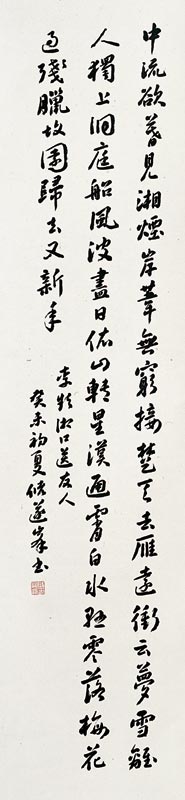 中流欲暮見湘煙岸葦無窮接楚天去雁遠衝云夢雪離
人獨上洞庭船風波盡日依山轉星漢通霄向水懸零落梅花
過殘臘故園歸去又新年
李頻湘口送友人
癸未初夏遂峯書